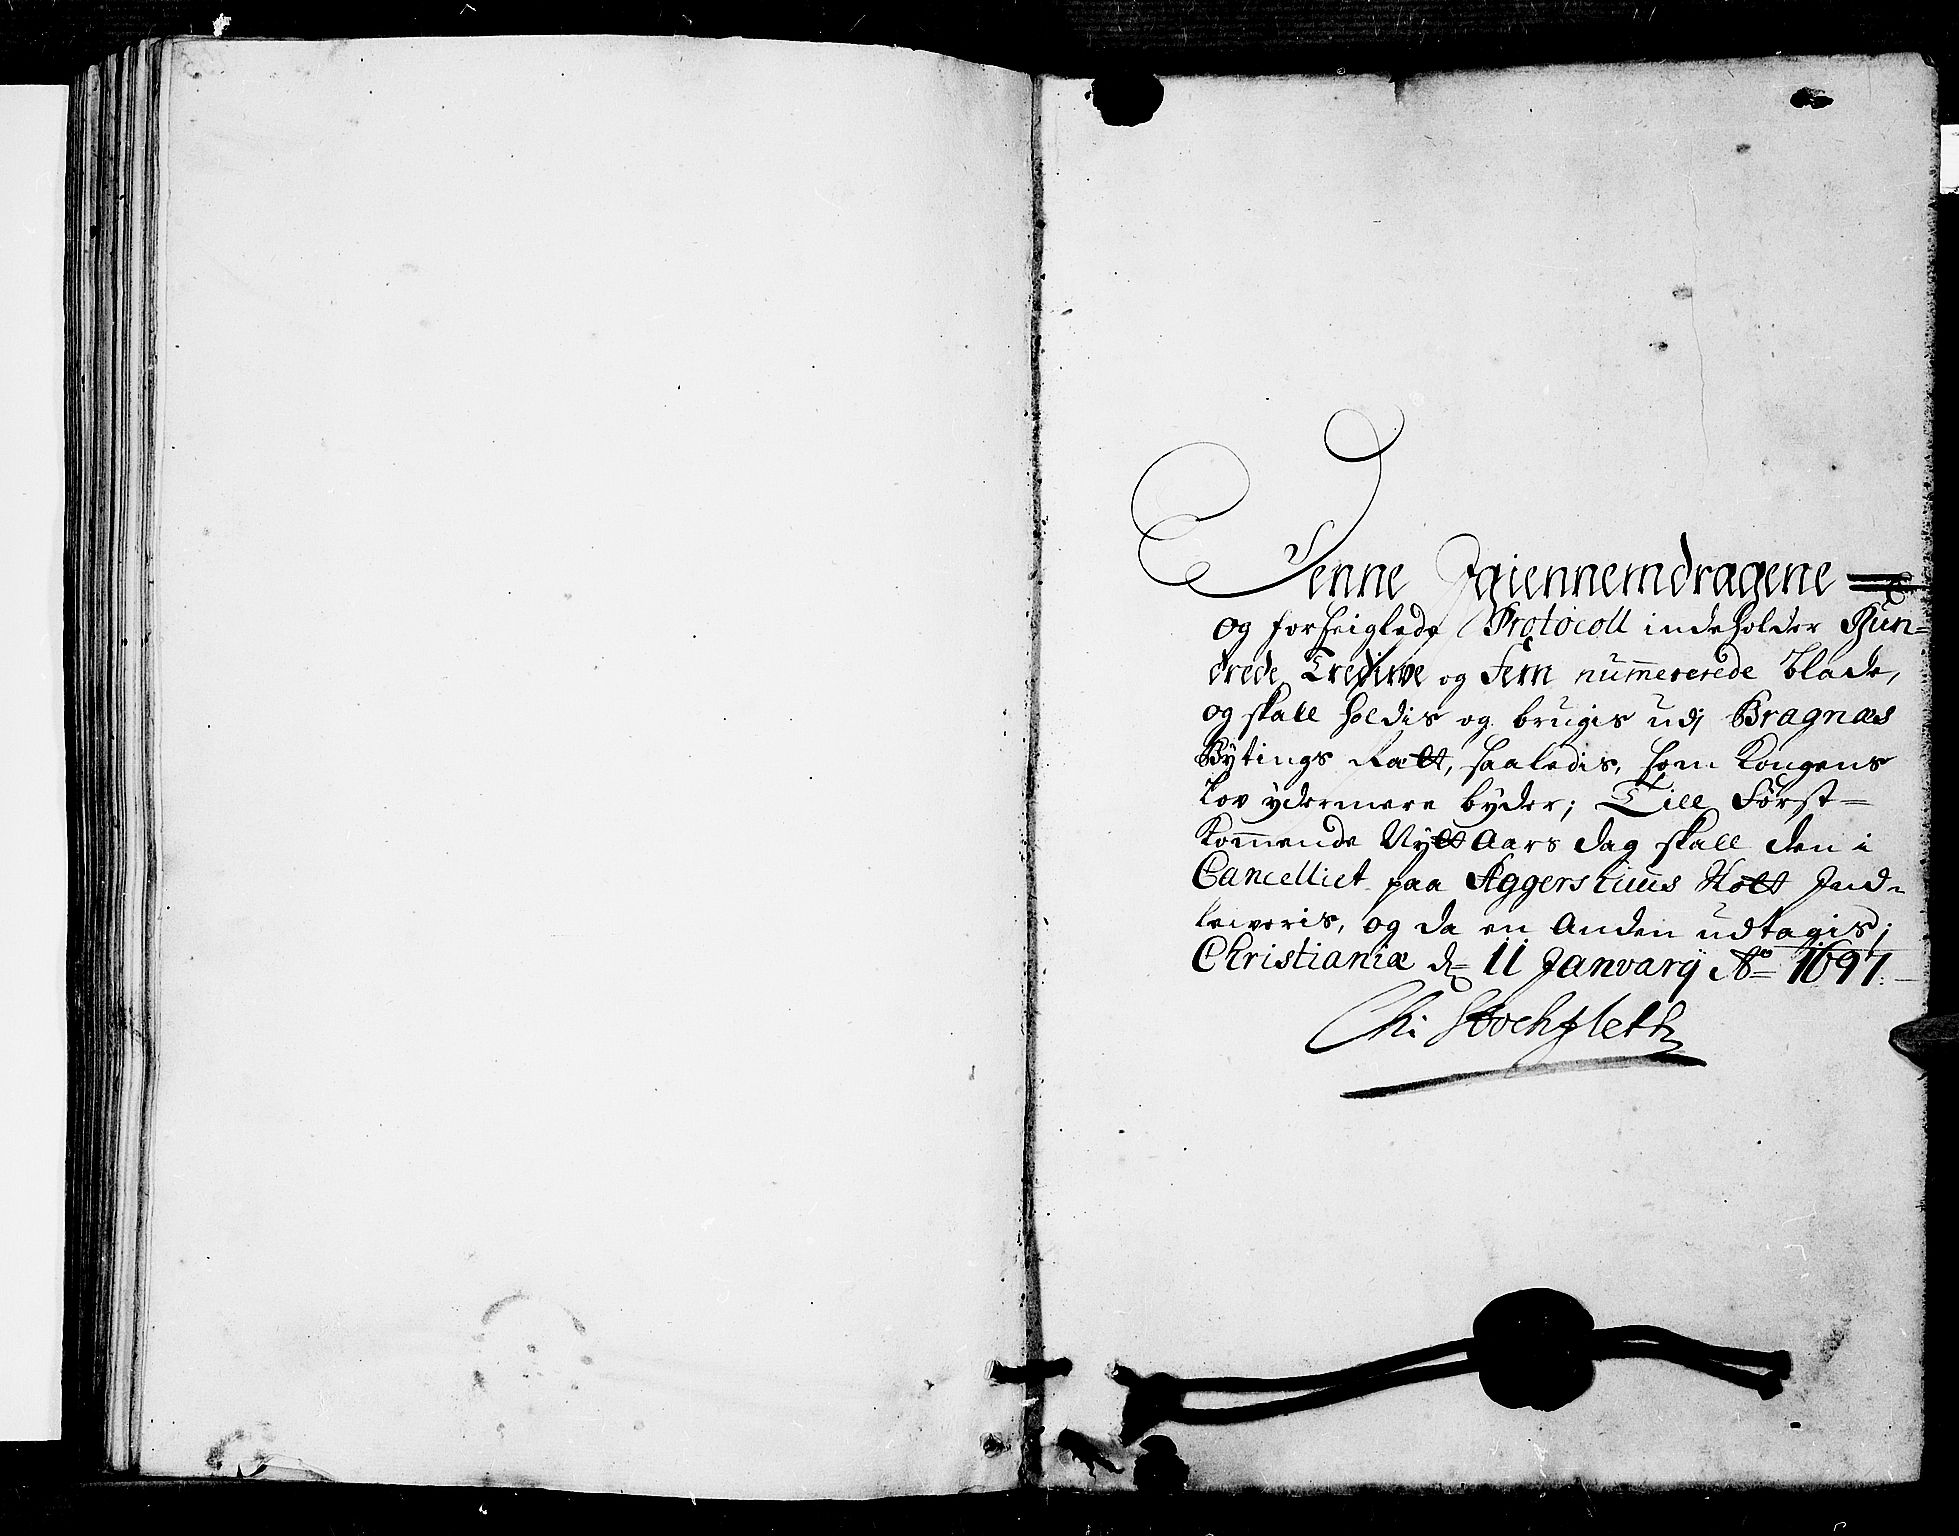 Denne Igiennemdragene
og forseiglede Protocoll indeholder Hun=
drede Tredive og Fem num̄ererede blade,
og skall holdis og brugis udj Bragnæs
Bytings Rætt, saaledis, som Kongens
Lov ydermere byder; Till Først=
kom̄ende Nytt Aars dag skall den i
Cancelliet paa Aggershuus Slott Ind=
leiveris, og da en Anden udtagis;
Christianiæ d. 11 Januarij Ao 1697.
Chr Stockfleth